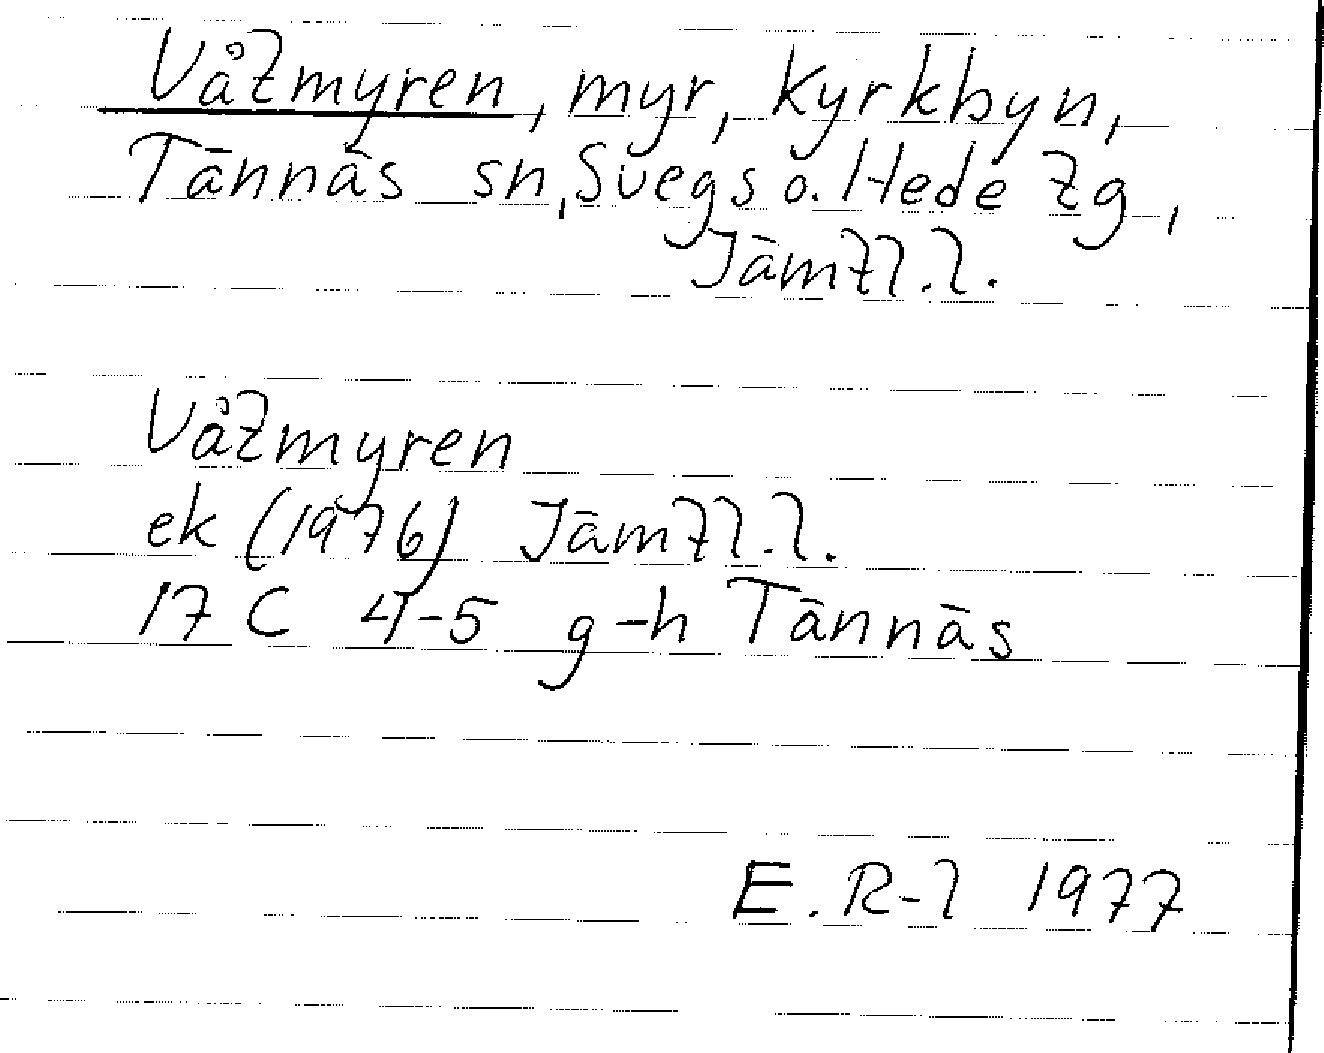 Våtmyren, myr, Kyrkbyn,
Tännäs sn, Svegs o. Hede tg,
Jämtl.l.
Våtmyren
ek (1976) Jämtl.l.
17 C 4-5 g-h Tännäs
E. R-l 1977